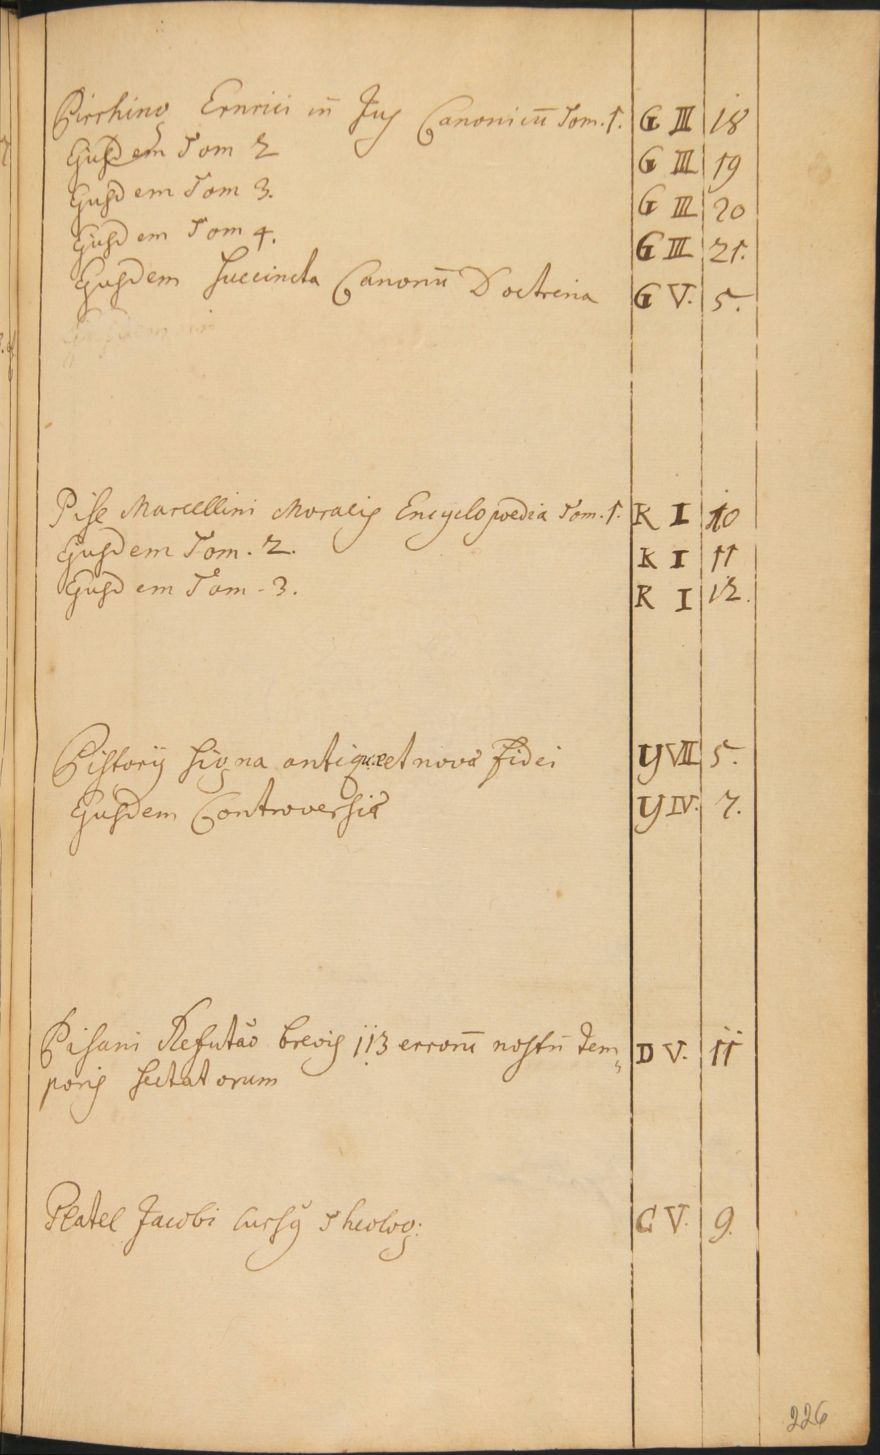 Pirrhing Ernrici in̄ Jus Canonicū Tom. 1. G III 18
Ejusdem Tom 2 G III 19
Ejusdem Tom 3. G III 20
Ejusdem Tom 4. G III 21.
Ejusdem Succincta Canonū Doctrina G V. 5.
Pise Marcellini Moralis Encyclopoedia Tom. 1. K I 10
Ejusdem Tom. 2. K I 11
Ejusdem Tom. 3. K I 12.
Pistorij Signa antiquae et novae Fidei Y VII 5.
Ejusdem Controversiae Y IV. 7.
Pisani Refutāo brevis 113 erroru̅ nostri Tem„ D V. 11
poris sectatorum
Platel Jacobi Cursus Theolog: C V. 9.
226